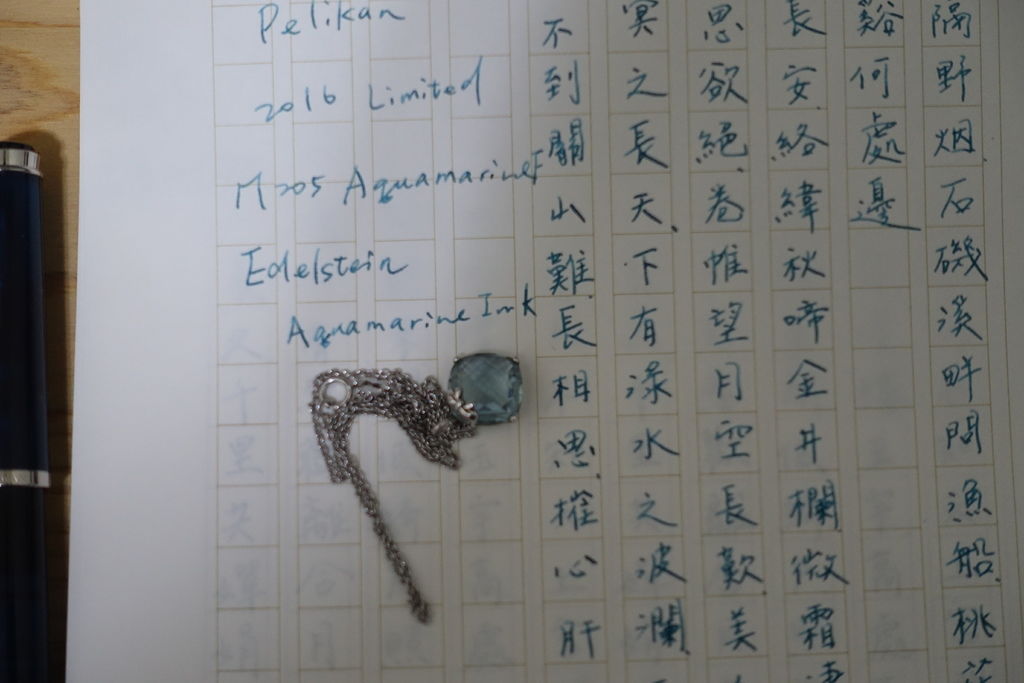 隔野烟石磯溪畔問漁船桃
谿何處邊
長安絡緯秋啼金井欄微霜
思欲絕卷帷望月空長歎美
冥之長天下有淥水之波瀾
不到關山難長相思摧心肝
Pelikan
2016 Limited
M205 Aquamarine F
Edelstein
Aquamarine Ink